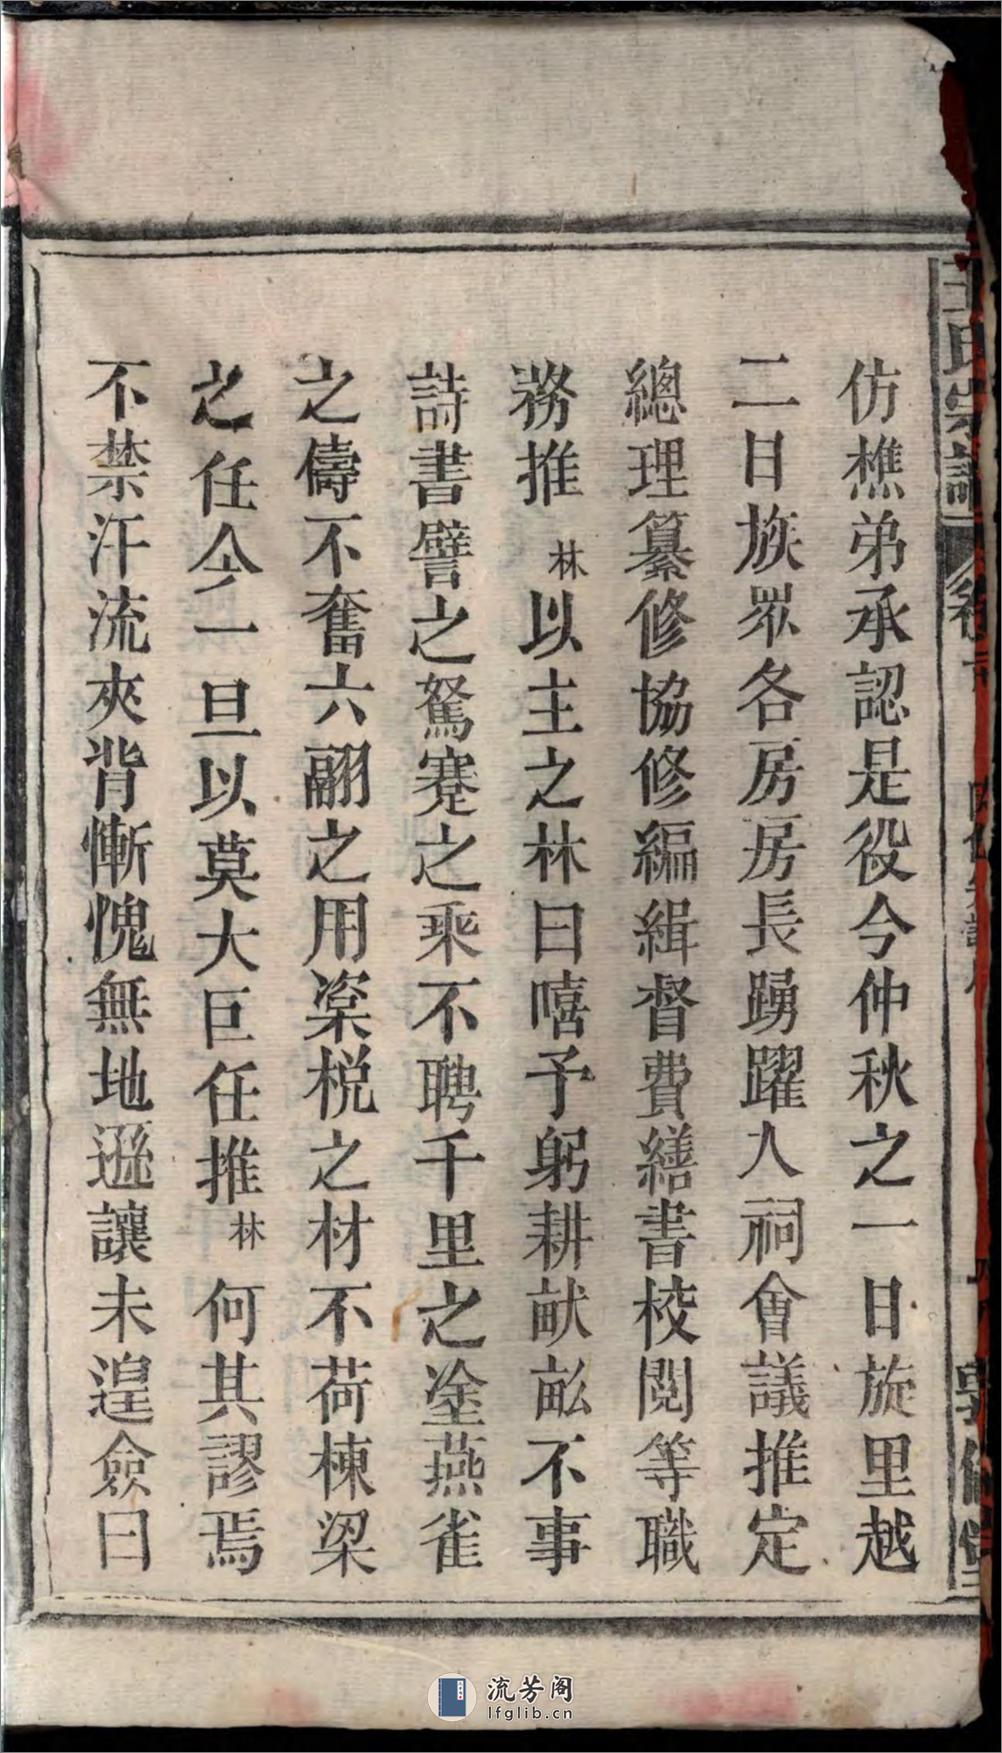 王氏宗譜
仿樵弟承認是役今仲秋之一日旋里越
二日族眾各房房長踴躍人祠會議推定
總理纂修協修編緝督費繕書校閱等職
務推林以主之林曰嘻予躬耕畎畝不事
詩書譬之駑蹇之乘不聘千里之塗燕雀
之儔不奮六翮之用楶梲之材不荷棟梁
之任今一旦以莫大巨任推林何其謬焉
不禁汗流夾背慚愧無地遜讓未遑僉曰
流芳阁
lfglib.cn